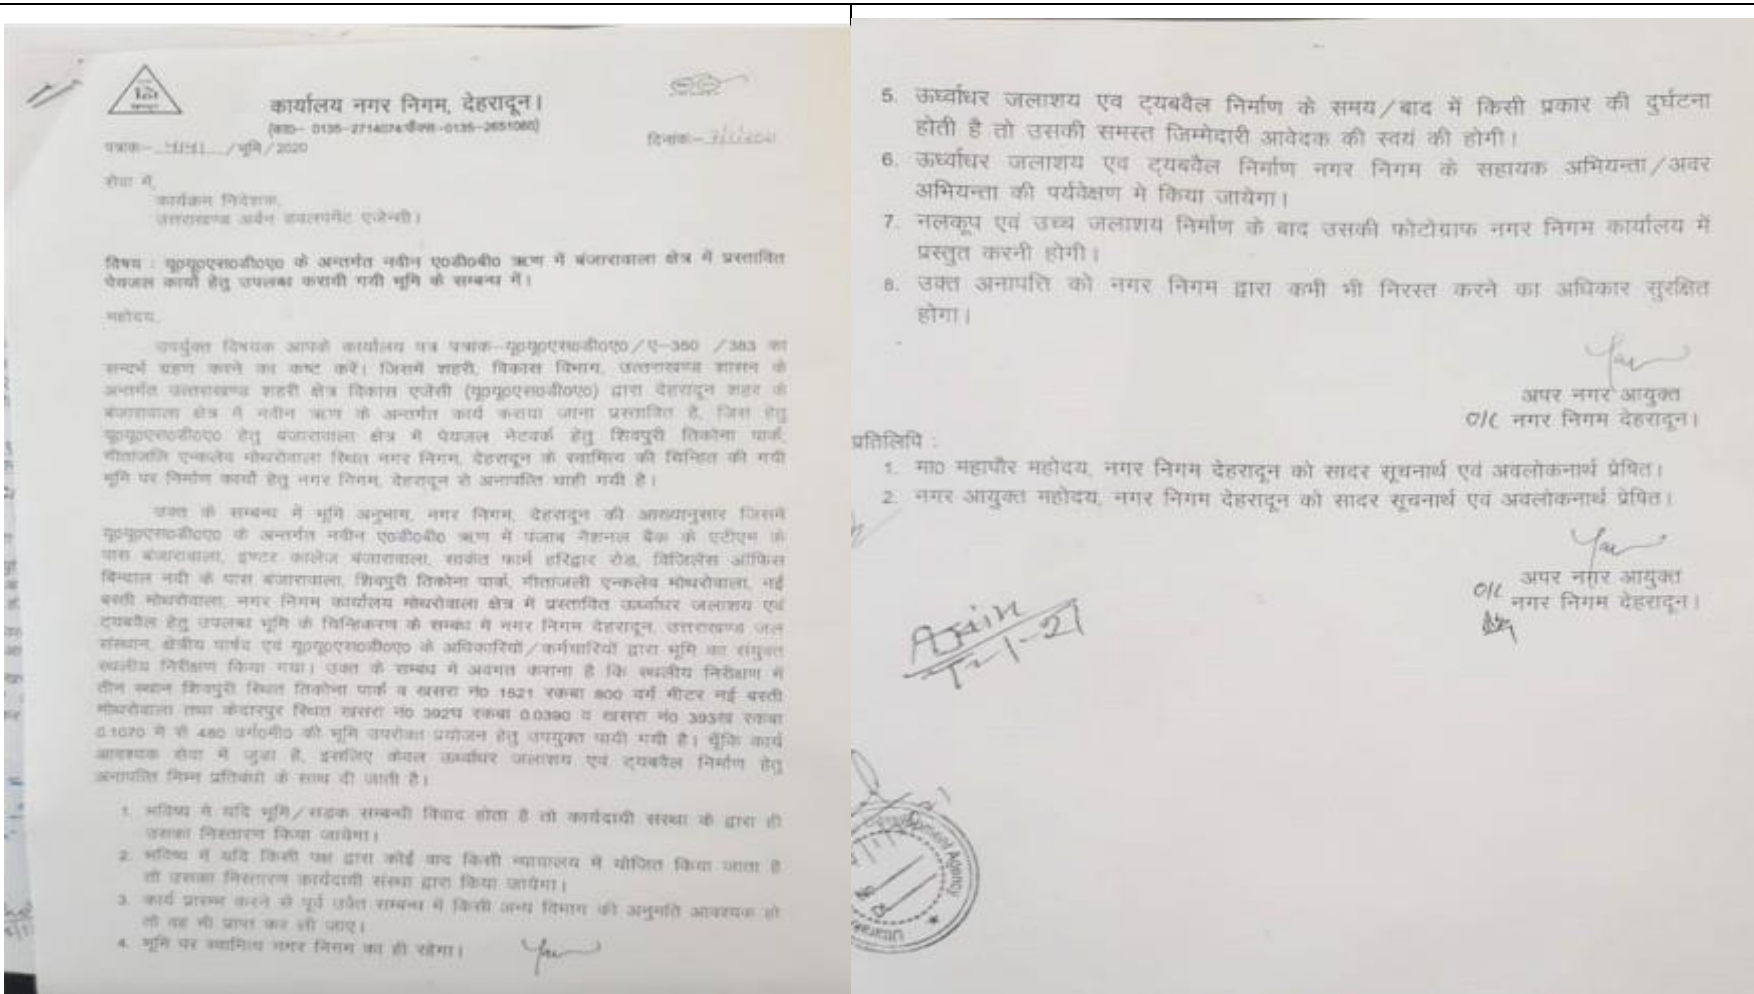 कार्यालय नगर निगम, देहरादून।
(का0- 0135-2714074 फैक्स-0135-2651060)
पत्रांक- /भूमि/2020
दिनांक-
सेवा में,
कार्यक्रम निदेशक,
उत्तराखण्ड अर्बन डवलपमेंट एजेन्सी।
विषय : यू0यू0एस0डी0ए0 के अन्तर्गत नवीन ए0डी0बी0 ऋण में बंजारावाला क्षेत्र में प्रस्तावित
पेयजल कार्यो हेतु उपलब्ध करायी गयी भूमि के सम्बन्ध में।
महोदय,
उपर्युक्त विषयक आपके कार्यालय पत्र पत्रांक-यू0यू0एस0डी0ए0/ए-350 /383 का
सन्दर्भ ग्रहण करने का कष्ट करें। जिसमें शहरी, विकास विभाग, उत्तराखण्ड शासन के
अन्तर्गत उत्तराखण्ड शहरी क्षेत्र विकास एजेंसी (यू0यू0एस0डी0ए0) द्वारा देहरादून शहर के
बंजारावाला क्षेत्र में नवीन ऋण के अन्तर्गत कार्य कराया जाना प्रस्तावित है, जिस हेतु
यू0यू0एस0डी0ए0 हेतु बंजारावाला क्षेत्र में पेयजल नेटवर्क हेतु शिवपुरी तिकोना पार्क,
गीतांजलि एन्कलेव मोथरोवाला स्थित नगर निगम, देहरादून के स्वामित्व की चिन्हित की गयी
भूमि पर निर्माण कार्यो हेतु नगर निगम, देहरादून से अनापत्ति चाही गयी है।
उक्त के सम्बन्ध में भूमि अनुभाग, नगर निगम, देहरादून की आख्यानुसार जिसमें
यू0यू0एस0डी0ए0 के अन्तर्गत नवीन ए0डी0बी0 ऋण में पंजाब नैशनल बैंक के एटीएम के
पास बंजारावाला, इण्टर कालेज बंजारावाला, साकेत फार्म हरिद्वार रोड, विजिलेंस ऑफिस
बिन्दाल नदी के पास बंजारावाला, शिवपुरी तिकोना पार्क, गीतांजली एन्कलेव मोथरोवाला, नई
बस्ती मोथरोवाला, नगर निगम कार्यालय मोथरोवाला क्षेत्र में प्रस्तावित ऊर्ध्वाधर जलाशय एवं
ट्यबवैल हेतु उपलब्ध भूमि के चिन्हिकरण के सम्बंध में नगर निगम देहरादून, उत्तराखण्ड जल
संस्थान, क्षेत्रीय पार्षद एवं यू0यू0एस0डी0ए0 के अधिकारियों/कर्मचारियों द्वारा भूमि का संयुक्त
स्थलीय निरीक्षण किया गया। उक्त के सम्बंध में अवगत कराना है कि स्थलीय निरीक्षण में
तीन स्थान शिवपुरी स्थित तिकोना पार्क व खसरा नं0 1521 रकबा 800 वर्ग मीटर नई बस्ती
मोथरोवाला तथा केदारपुर स्थित खसरा नं0 392घ रकबा 0.0390 व खसरा नं0 393ख रकबा
0.1070 में से 480 वर्ग0मी0 की भूमि उपरोक्त प्रयोजन हेतु उपयुक्त पायी गयी है। चूँकि कार्य
आवश्यक सेवा में जुड़ा है, इसलिए केवल ऊर्ध्वाधर जलाशय एवं ट्यबवैल निर्माण हेतु
अनापत्ति निम्न प्रतिबंधो के साथ दी जाती है।
1. भविष्य में यदि भूमि/सड़क सम्बन्धी विवाद होता है तो कार्यदायी संस्था के द्वारा ही
उसका निस्तारण किया जायेगा।
2. भविष्य में यदि किसी पक्ष द्वारा कोई वाद किसी न्यायालय में योजित किया जाता है
तो उसका निस्तारण कार्यदायी संस्था द्वारा किया जायेगा।
3. कार्य प्रारम्भ करने से पूर्व सम्बन्ध में किसी अन्य विभाग की अनुमति आवश्यक हो
तो वह भी प्राप्त कर ली जाए।
4. भूमि पर स्वामित्व नगर निगम का ही रहेगा।
5. ऊर्ध्वाधर जलाशय एव ट्यबवैल निर्माण के समय/बाद में किसी प्रकार की दुर्घटना
होती है तो उसकी समस्त जिम्मेदारी आवेदक की स्वयं की होगी।
6. ऊर्ध्वाधर जलाशय एव ट्यबवैल निर्माण नगर निगम के सहायक अभियन्ता/अवर
अभियन्ता की पर्यवेक्षण मे किया जायेगा।
7. नलकूप एवं उच्च जलाशय निर्माण के बाद उसकी फोटोग्राफ नगर निगम कार्यालय में
प्रस्तुत करनी होगी।
8. उक्त अनापत्ति को नगर निगम द्वारा कभी भी निरस्त करने का अधिकार सुरक्षित
होगा।
अपर नगर आयुक्त
O/C नगर निगम देहरादून।
प्रतिलिपि :
1. मा0 महापौर महोदय, नगर निगम देहरादून को सादर सूचनार्थ एवं अवलोकनार्थ प्रेषित।
2. नगर आयुक्त महोदय, नगर निगम देहरादून को सादर सूचनार्थ एवं अवलोकनार्थ प्रेषित।
अपर नगर आयुक्त
O/C नगर निगम देहरादून।
Development Agency